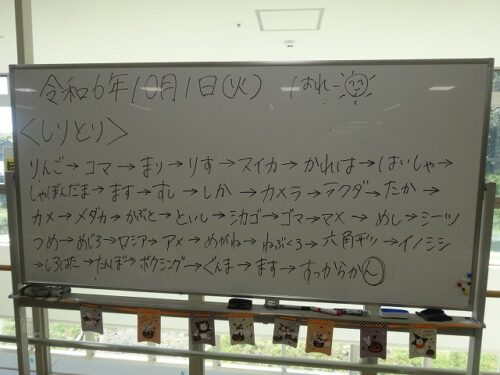 令和6年10月1日(火) はれー
<しりとり>
りんご→コマ→まり→りす→スイカ→かれは→はいしゃ→
しゃぼんだま→ます→すし→しか→カメラ→ラクダ→たか→
カメ→メダカ→かぶと→といし→シカゴ→ゴマ→マメ→めし→シーツ
つめ→めじろ→ロシア→アメ→めがね→ねぶくろ→六角→イノシシ
→しろばこ→たんぼ→ボクシング→ぐんま→ます→すっからかん